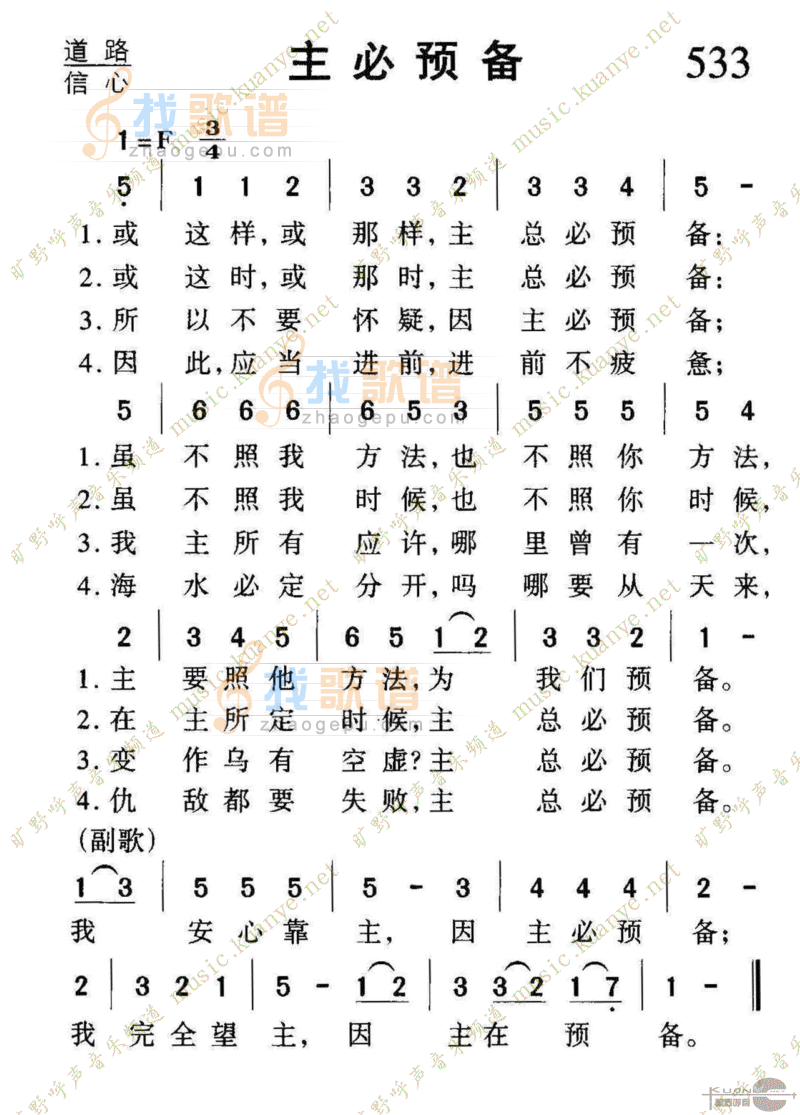 道路
信心
主必预备
533
1=F 3/4
5 | 1 1 2 | 3 3 2 | 3 3 4 | 5 -
1.或 这样,或 那样,主 总必预 备:
2.或 这时,或 那时,主 总必预 备:
3.所 以不要 怀疑,因 主必预 备;
4.因 此,应当 进前,进 前不疲 惫;
5 | 6 6 6 | 6 5 3 | 5 5 5 | 5 4
1.虽 不照我 方法,也 不照你 方法,
2.虽 不照我 时候,也 不照你 时候,
3.我 主所有 应许,哪 里曾有 一次,
4.海 水必定 分开,吗 哪要从 天来,
2 | 3 4 5 | 6 5 1 2 | 3 3 2 | 1 -
1.主 要照他 方法,为 我们预 备。
2.在 主所定 时候,主 总必预 备。
3.变 作乌有 空虚?主 总必预 备。
4.仇 敌都要 失败,主 总必预 备。
(副歌)
1 3 | 5 5 5 | 5 - 3 | 4 4 4 | 2 -
我 安心靠 主, 因 主必预 备;
2 | 3 2 1 | 5 - 1 2 | 3 3 2 1 7 | 1 - ‖
我 完全望 主, 因 主在 预 备。
找歌谱
zhaogepu.com
找歌谱
zhaogepu.com
找歌谱
zhaogepu.com
旷野呼声音乐频道 music.kuanye.net